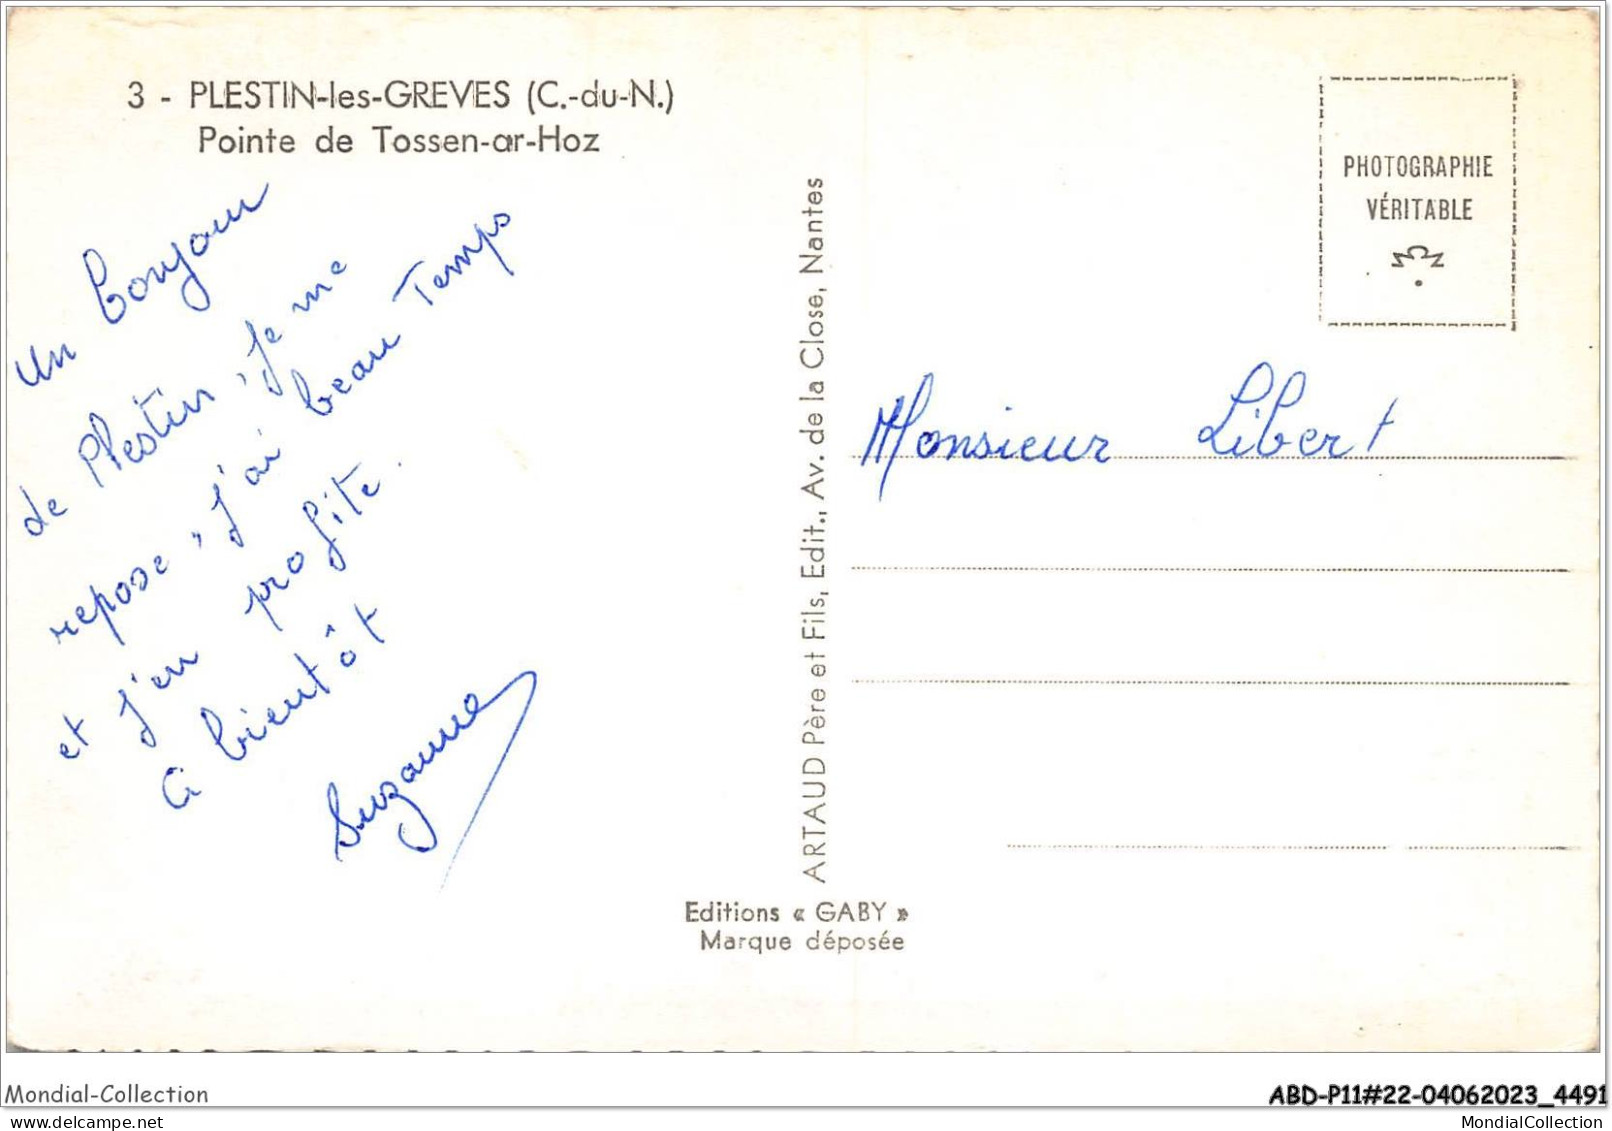 3 - PLESTIN-les-GREVES (C.-du-N.)
Pointe de Tossen-ar-Hoz
Un bonjour
de Plestin, Je me
repose, J'ai beau Temps
et J'en profite.
A bientôt
Suzanne
ARTAUD Père et Fils, Edit., Av. de la Close, Nantes
Editions « GABY »
Marque déposée
PHOTOGRAPHIE
VÉRITABLE
Monsieur Libert
Mondial-Collection
ABD-P11#22-04062023_4491
MondialCollection
MondialCollection